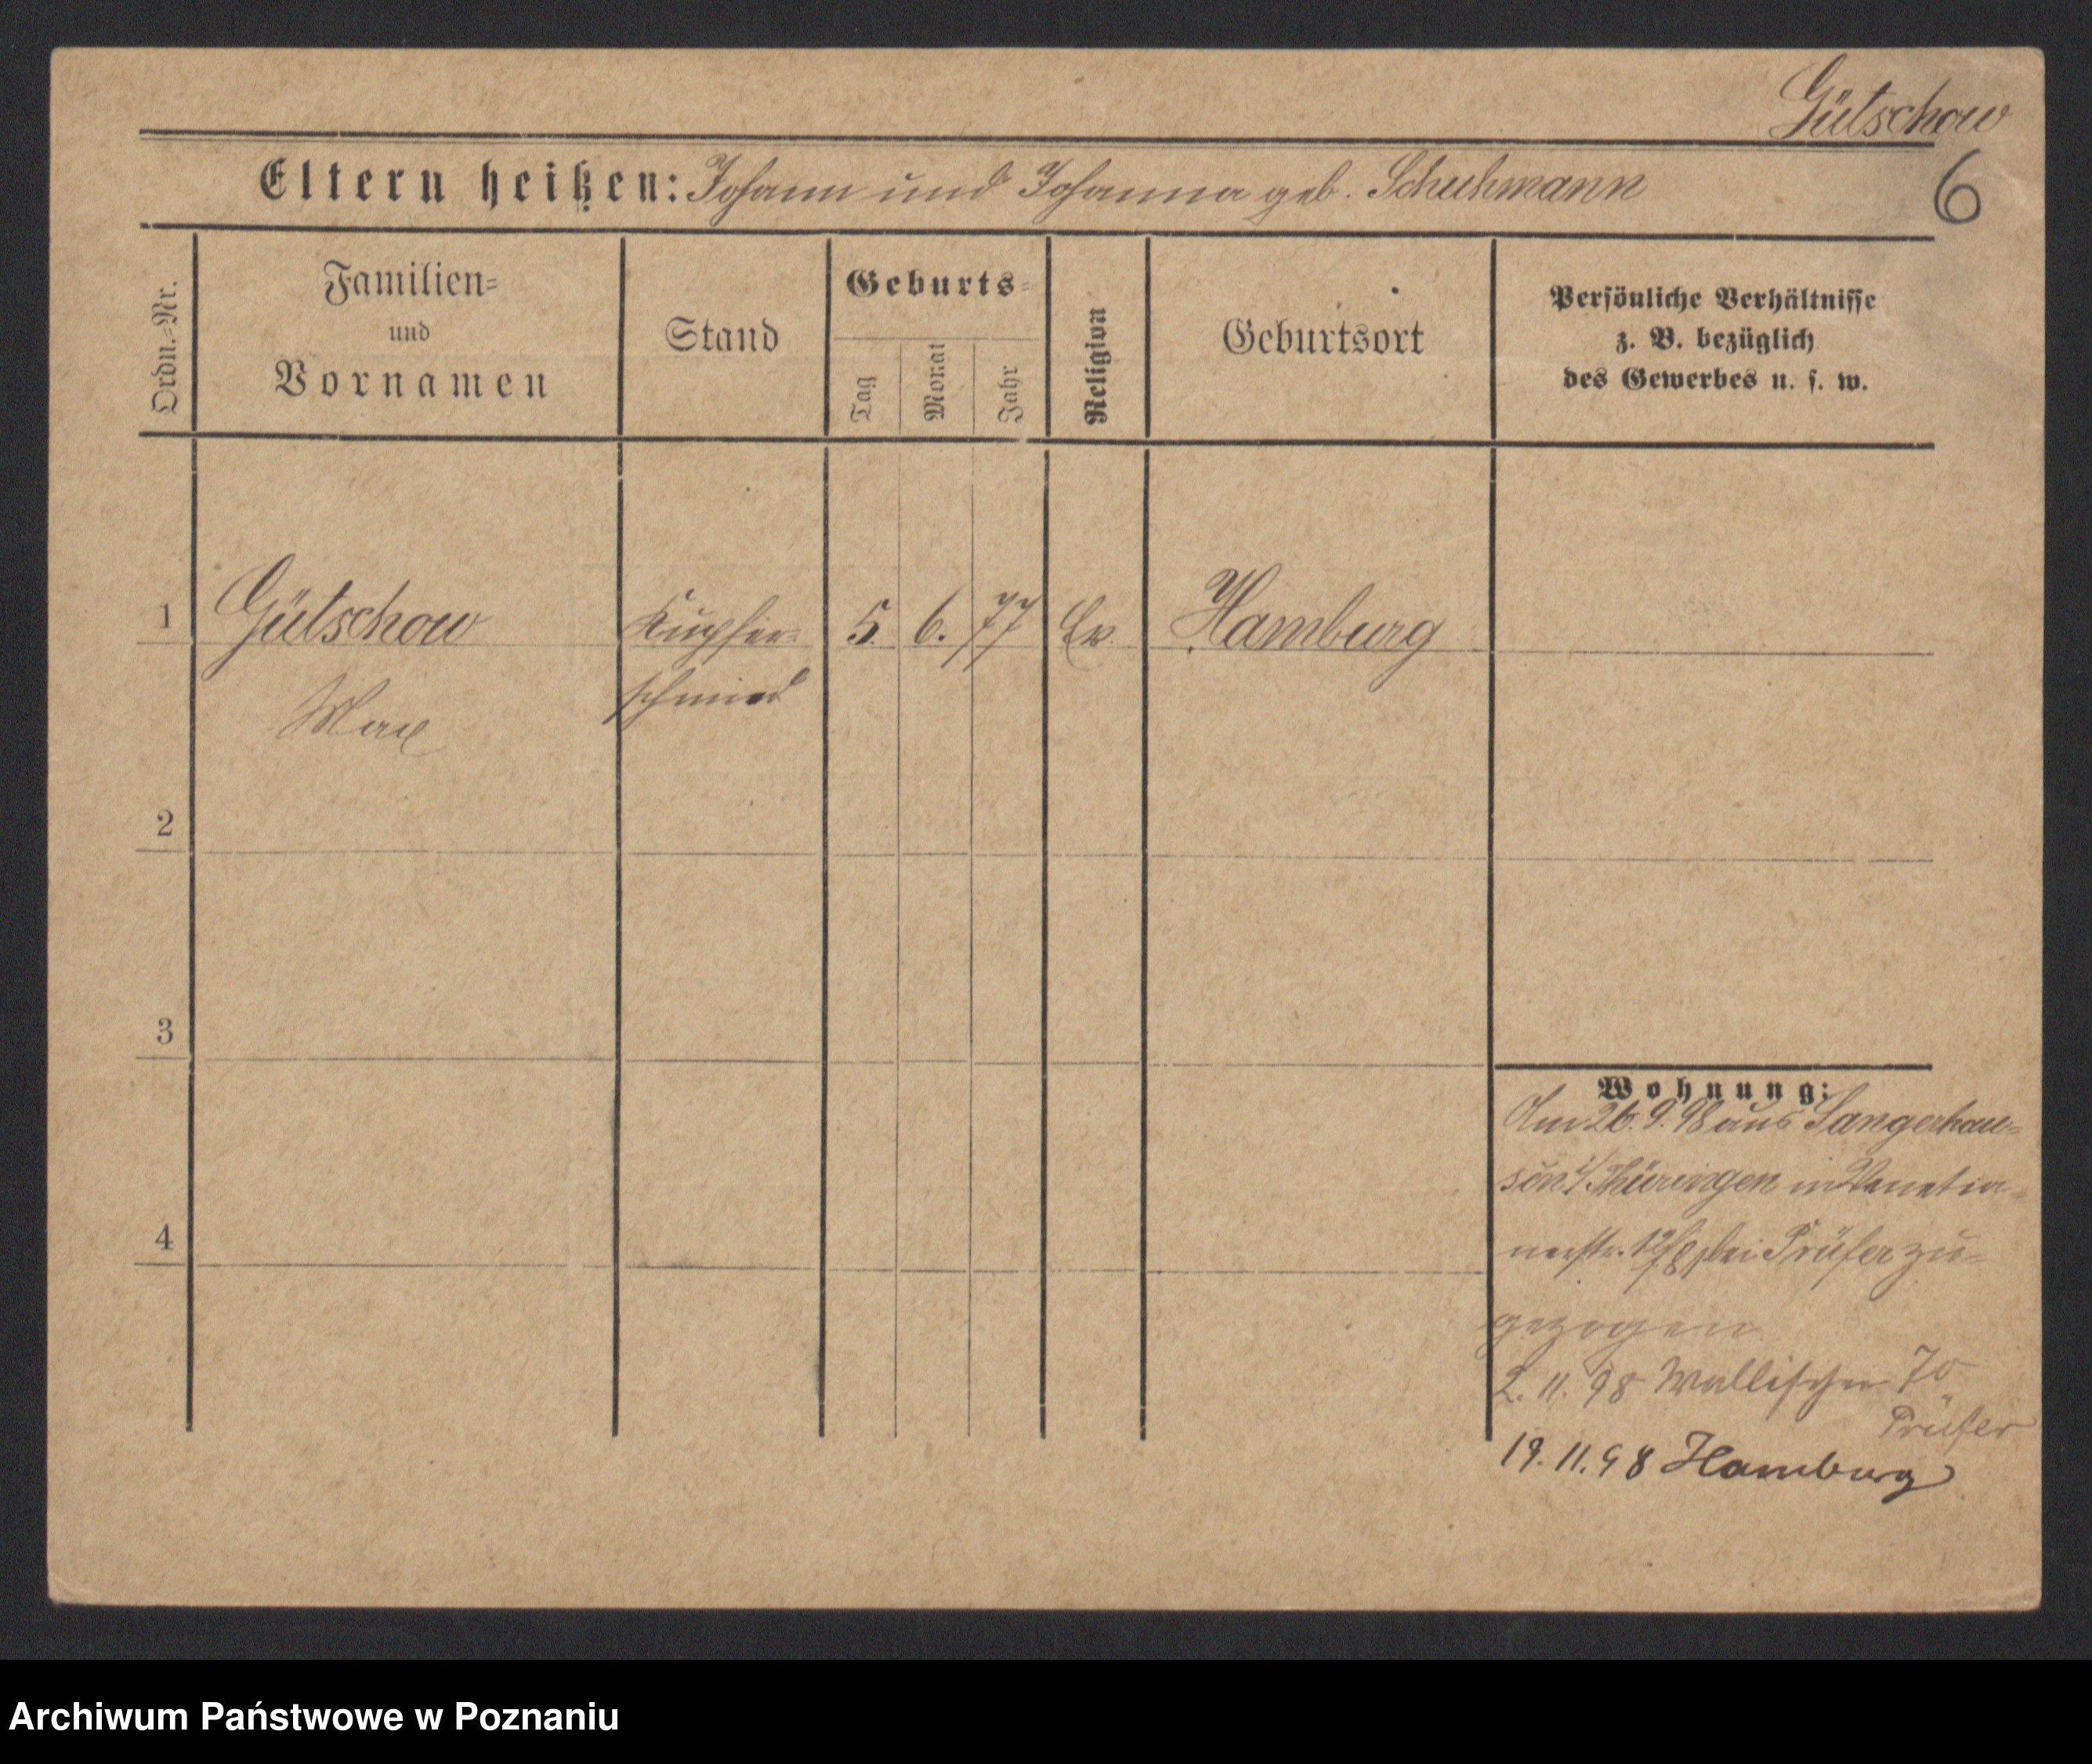 Gütschow
Eltern heißen: Johann und Johanna geb. Schuhmann
6
Ordn.-Nr.
Familien-
und
Vornamen
Stand
Geburts-
Tag
Monat
Jahr
Religion
Geburtsort
Persönliche Verhältnisse
z. B. bezüglich
des Gewerbes u. s. w.
1 Gütschow Kupfer- 5. 6. 77 Ev. Hamburg
Max schmied
2
3
4
Wohnung:
Am 26.9.98 aus Sangerhau-
sen i/Thüringen in Venetia-
nerstr. bei Prüfer zu-
gezogen
2. 11. 98 Wallischei 70
Prüfer
19. 11. 98 Hamburg
Archiwum Państwowe w Poznaniu